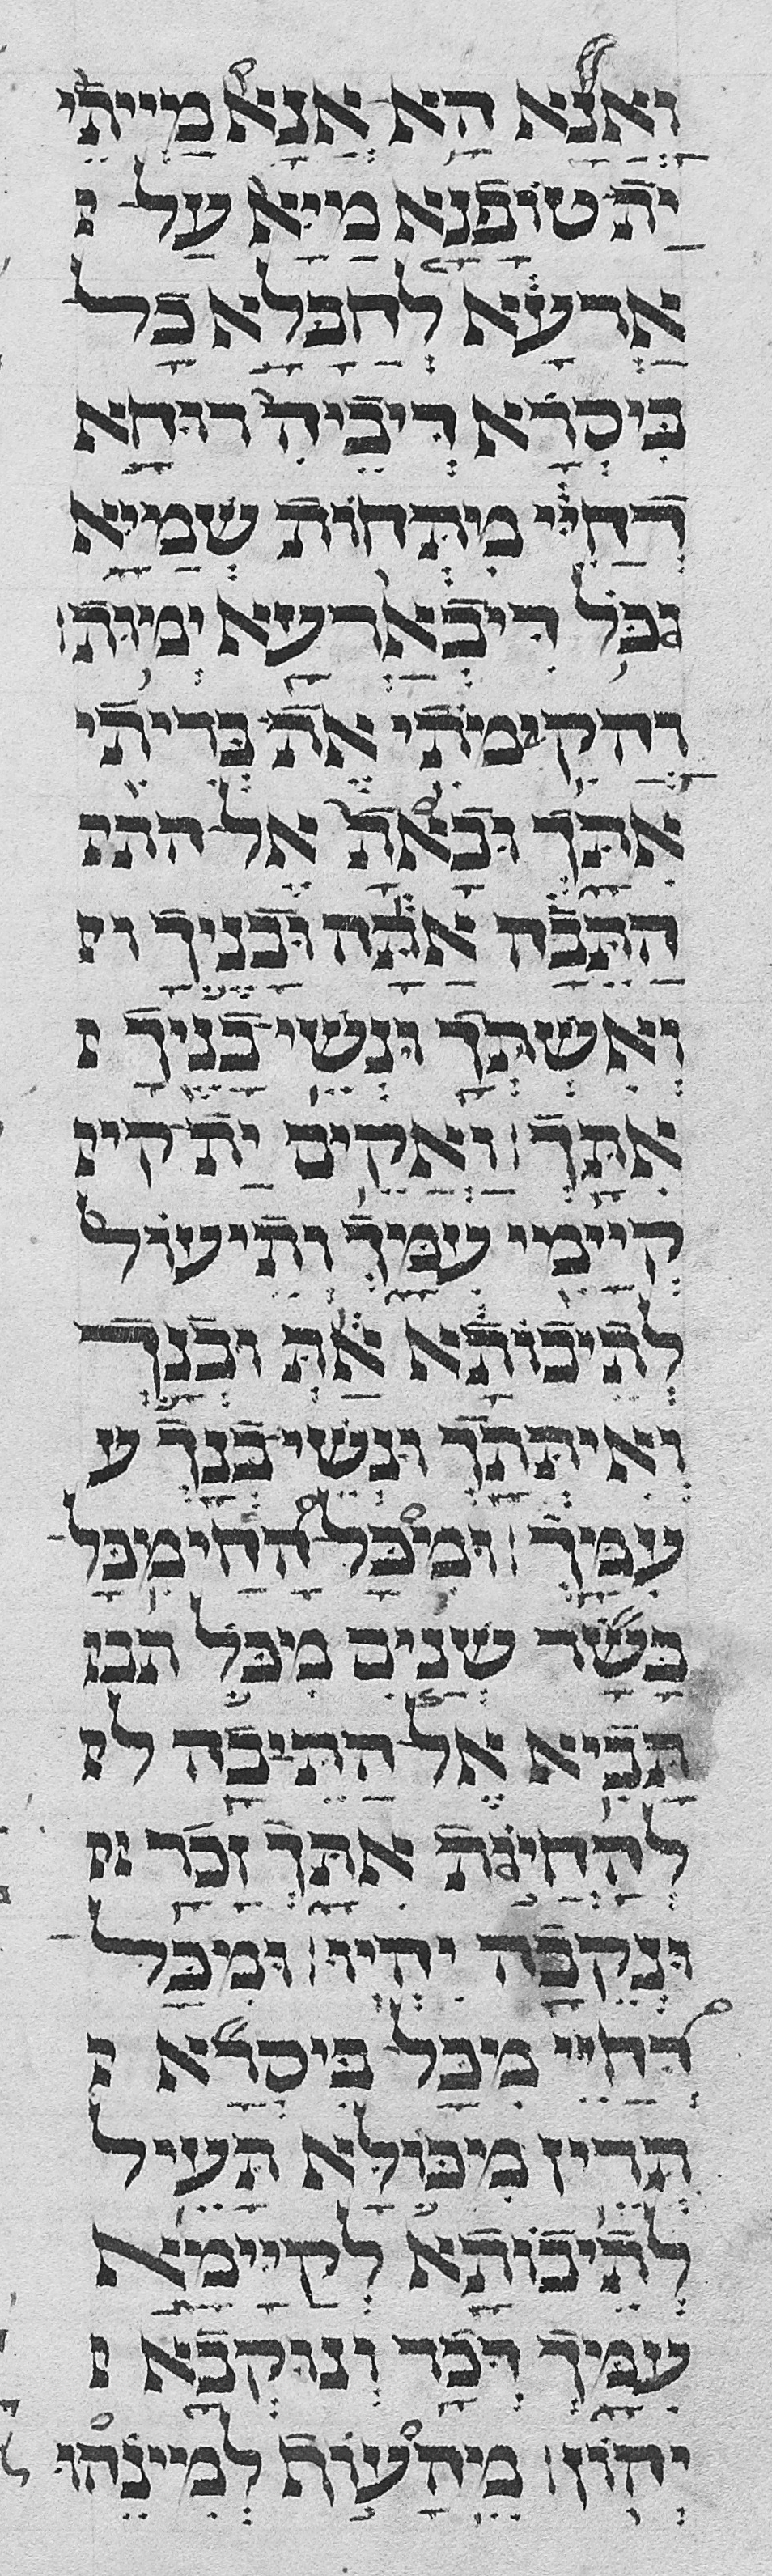 ואנא הא אנא מייתי
ית טופנא מיא על י
ארעא לחבלא כל
ביסרא דיביה רוחא
דחיי מתחות שמיא
וכל דיבארעא ימות׃
והקימתי את בריתי
אתך ובאת אל התי
התבה אתה ובניך וי
ואשתך ונשי בניך י
אתך׃ ואקים ית קיי
קיימי עמך ותיעול
לתיבותא את ובנך
ואיתתך ונשי בנך ע
עמך׃ ומכל החי מכל
בשר שנים מכל תבי
תביא אל התיבה לי
להחיות אתך זכר וי
ונקבה יהיו׃ ומכל
דחיי מכל ביסרא י
תרין מכולא תעיל
לתיבותא לקיימא
עמך דכר ונוקבא י
יהון׃ מהעוף למינהו